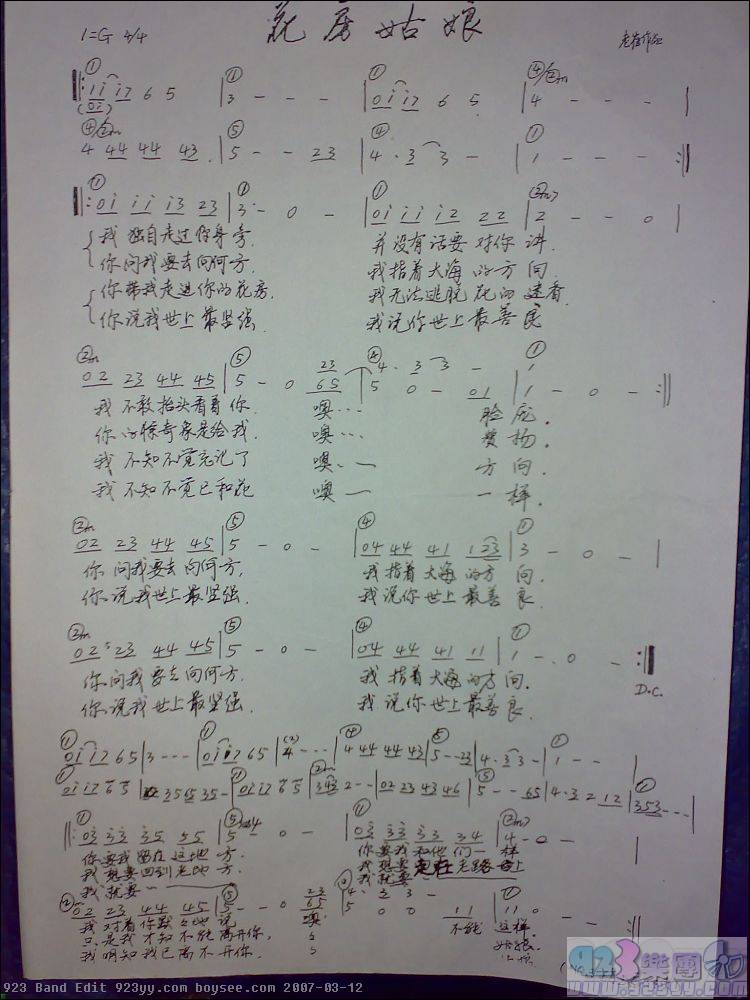 花房姑娘
1=G 4/4
老崔作品
① ① ① ④/②m
‖: 1i i7 6 5 | 3 - - - | 0i i7 6 5 | 4 - - - |
(02)
④/②m ⑤ ④ ①
4 44 44 43 | 5 - - 23 | 4· 3 3 - | 1 - - - :‖
① ① ① (2m)
‖: 0i ii i3 23 | 3 - 0 - | 0i ii i2 22 | 2 - - 0 |
我独自走过你身旁. 并没有话要对你讲.
你问我要去向何方. 我指着大海的方向
你带我走进你的花房 我无法逃脱花的迷香
你说我世上最坚强. 我说你世上最善良
②m ⑤ ④ ①
02 23 44 45 | 5 - 0 23 | 4· 3 3 - | 1
65 | 5 0 - 01 | 1 - 0 - :‖
我不敢抬头看着你. 噢… 脸庞.
你的惊奇象是给我. 噢… 赞扬.
我不知不觉忘记了 噢·一 方向.
我不知不觉已和花 噢一 一样.
②m ⑤ ④ ①
02 23 44 45 | 5 - 0 - | 04 44 41 123 | 3 - 0 - |
你问我要去向何方, 我指着大海的方向.
你说我世上最坚强. 我说你世上最善良.
②m ⑤ ④ ①
02 23 44 45 | 5 - 0 - | 04 44 41 11 | 1 - 0 - :‖
你问我要去向何方. 我指着大海的方向.
你说我世上最坚强. 我说你世上最善良.
D.C.
0i i7 65 | 3 - - - | 0i i7 65 | 4 - - - | 4 44 44 43 | 5 - - 23 | 4· 3 3 - | 1 - - |
‖: 03 33 35 55 | 5 - 0 - | 03 33 33 34 | 4 - 0 - |
你要我留在这地方. 你要我和他们一样
我想要回到老地方. 我想要走在老路上
我就要一 我就要
02 23 44 45 | 5 - - 0
我对着你默默地说 噢 不能这样.
只是我才知不能离开你, 姑娘.
我明知我已离不开你. 姑娘
923樂團
923 Band Edit 923yy.com boysee.com 2007-03-12